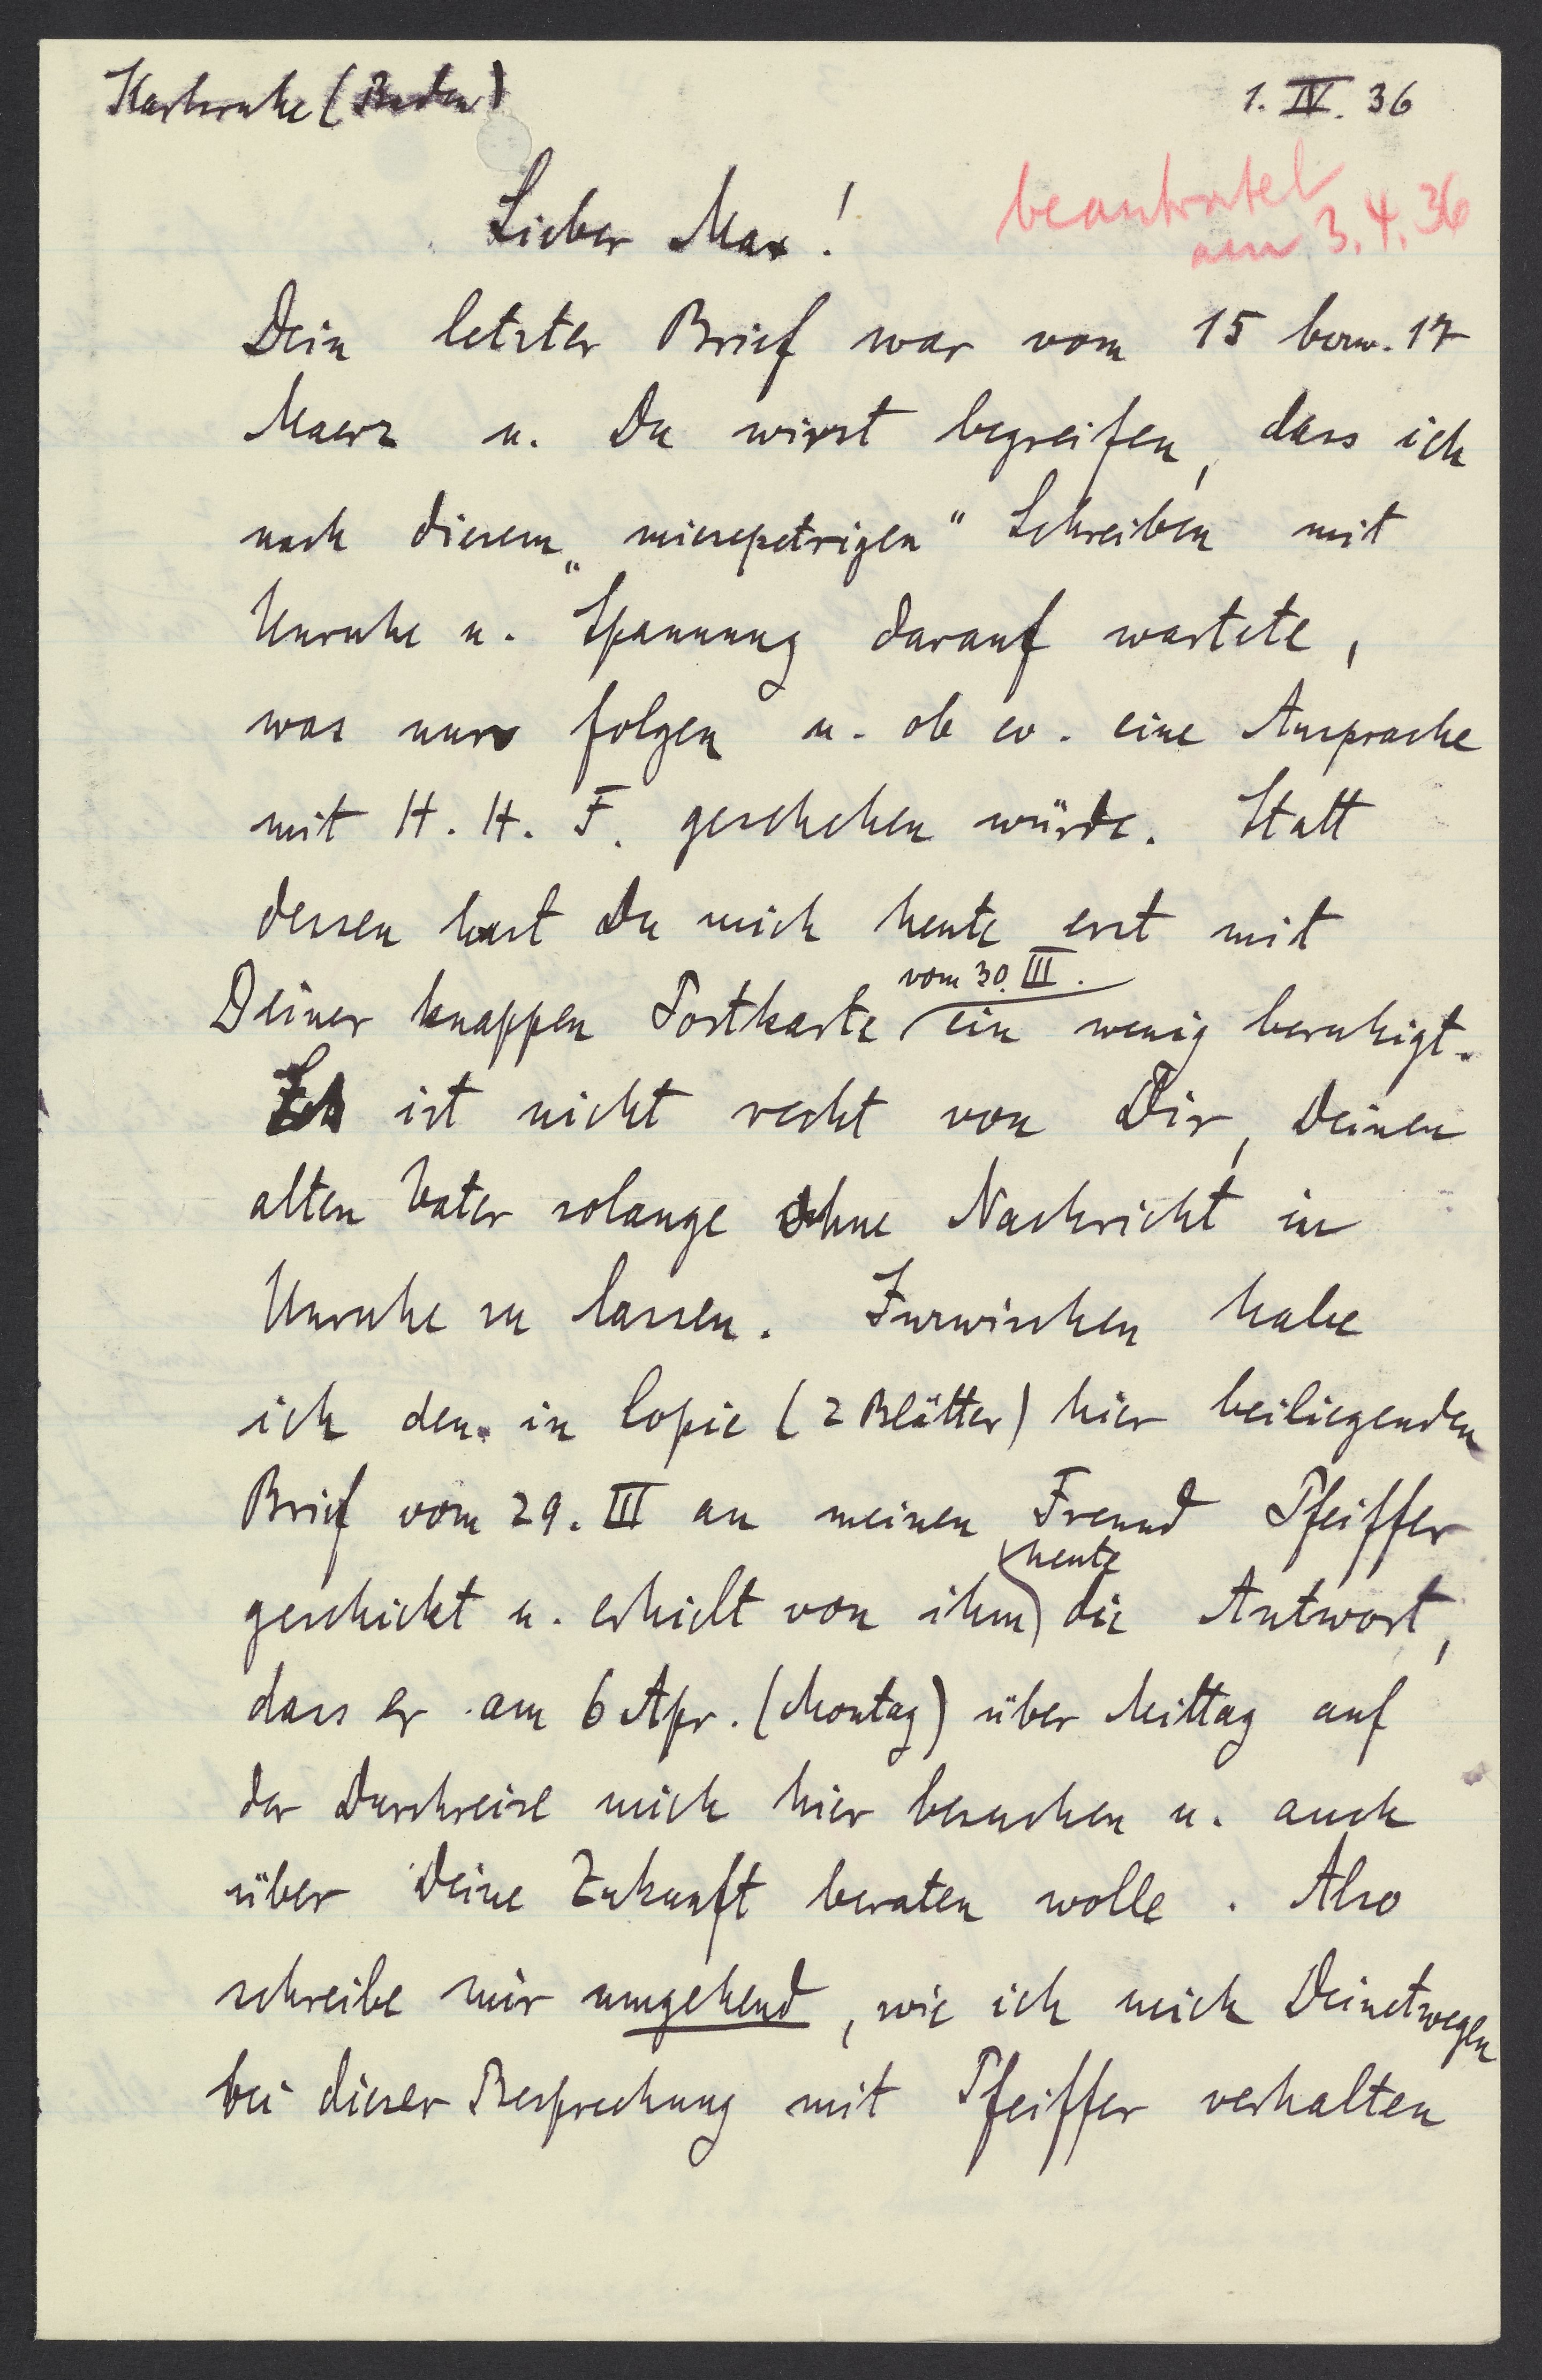 Karlsruhe (Baden) 1. IV. 36
beantwortet
am 3. 4. 36
Lieber Max!
Dein letzter Brief war vom 15 bezw. 17
Maerz u. Du wirst begreifen, dass ich
nach diesem „miesepetrigen“ Schreiben mit
Unruhe u. Spannung darauf wartete,
was nun folgen u. ob ev. eine Ansprache
mit H. H. F. geschehen würde. Statt
dessen hast Du mich heute erst mit
Deiner knappen Postkarte vom 30. III. ein wenig beruhigt.
Es ist nicht recht von Dir, Deinen
alten Vater solange ohne Nachricht in
Unruhe zu lassen. Inzwischen habe
ich den in Copie (2 Blätter) hier beiliegenden
Brief vom 29. III an meinen Freund Pfeiffer
geschickt u. erhielt von ihm heute die Antwort,
dass er am 6 Apr. (Montag) über Mittag auf
der Durchreise mich hier besuchen u. auch
über Deine Zukunft beraten wolle. Also
schreibe mir umgehend, wie ich mich Deinetwegen
bei dieser Besprechung mit Pfeiffer verhalten